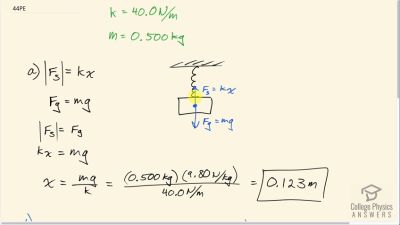 44PE
k = 40.0 N/m
m = 0.500 kg
a) |F_s| = kx
F_g = mg
|F_s| = F_g
kx = mg
F_s = kx
F_g = mg
x = mg/k = (0.500 kg)(9.80 N/kg)/40.0 N/m = 0.123 m
College Physics
ANSWERS